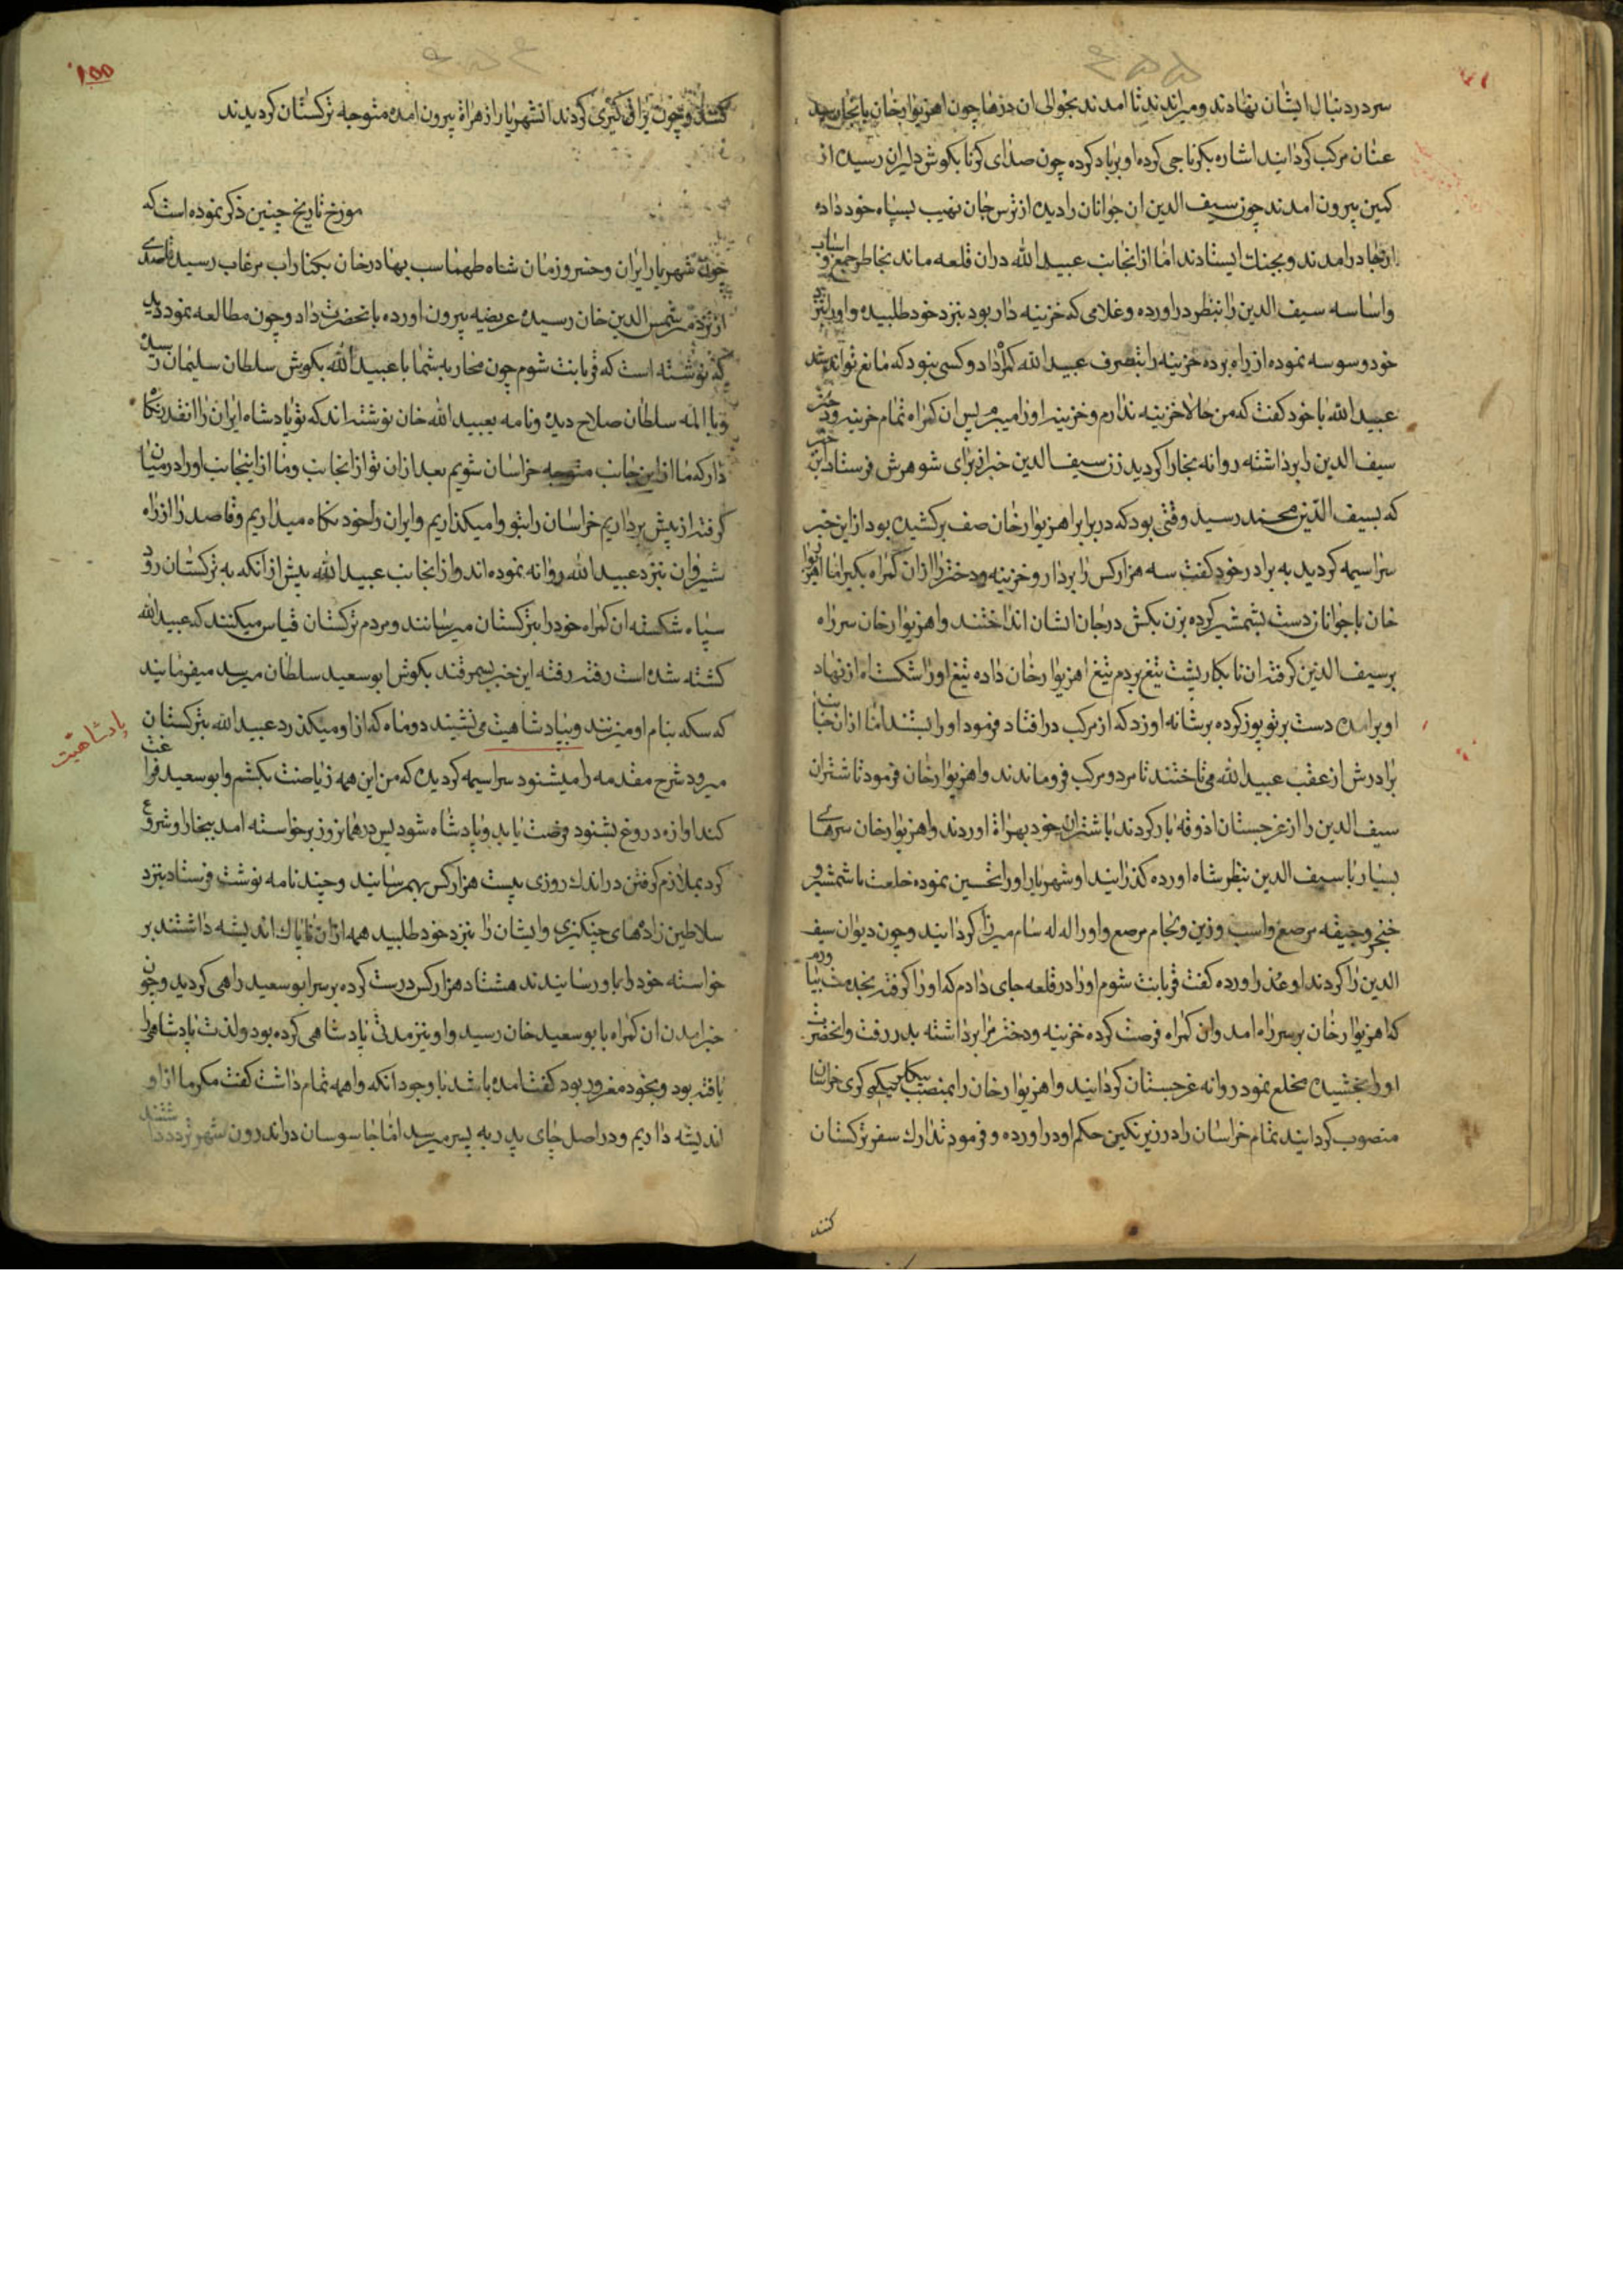 سر در دنبال ایشان نهادند و میراندند تا امدند بحوالی ان درها چون اهزیوار خان بانجا رسید
عنان مرکب کردانید اشاره بکرناچی کرده او برباد کرده چون صدای کرنا بکوش دلیران رسید از
کمین بیرون امدند چون سیف الدین ان جوانان را دید از ترس جان نهیب بسپاه خود داده
درامدند و بجنك ایستادند اما از انجانب عبید الله دران قلعه ماند بخاطر جمع و اسباب
واساسه سیف الدین را بنظر دراورده و غلامی که خزینه دار بود بنزد خود طلبیده و اورا بنزد
خود وسوسه نموده از راه برده خزینه را بتصرف عبید الله داد و کسی نبود که مانع تواند شد
عبید الله با خود کفت که من حالا خزینه ندارم و خزینه اورا میبرم پس ان کمراه تمام خزینه و دختر
سیف الدین را برداشته روانه بخارا کردید زن سیف الدین خبر از برای شوهرش فرستاد این خبر
که بسیف الدین محمد رسید وقتی بود که در برابر اهزیوار خان صف برکشیده بود از این خبر
سراسیمه کردید به برادر خود کفت سه هزار کس را بردار و خزینه و دختر را از ان کمراه بکیر اما اهزیوار
خان با جوانان دست بشمشیر کرده بزن بکش در جان ایشان انداختند و اهزیوار خان سر راه
بر سیف الدین کرفته ان نابکار پشت تیغ بر دم تیغ اهزیوار خان داده تیغ اورا شکست اه از نهاد
او برامده دست بر توپوز کرده بر شانه او زد که از مرکب درافتاد فرمود اورا بستند اما از ان جانب
برادرش از عقب عبید الله می تاختند تا مرد و مرکب فروماندند و اهزیوار خان فرمود تا شتران
سیف الدین را از غرجستان اذوقه بار کردند با شتران خود بهراة اوردند و اهزیوار خان سرهای
بسیار با سیف الدین بنظر شاه اورده کذرانید او شهریار اورا تحسین نموده خلعت با شمشیر و
خنجر و جیقه مرصع و اسب و زین و لجام مرصع و اورا له له سام میرزا کردانید و چون دیوان سیف
الدین را کردند او عذر اورده کفت قربانت شوم اورا در قلعه جای دادم که اورا کرفته بخدمت بیاورم
که اهزیوار خان بر سر راه امد و ان کمراه فرصت کرده خزینه و دختر مرا برداشته بدر رفت و انحضرت
اورا بخشیده مخلع نمود روانه غرجستان کردانید و اهزیوار خان را بمنصب بیکلر بیکی کری خراسان
منصوب کردانید تمام خراسان را در زیر نکین حکم او دراورده و فرمود تدارك سفر ترکستان
کنند
کنند و چون یراق کیری کردند انشهریار از هراة بیرون امده متوجه ترکستان کردیدند
مورخ تاریخ چنین ذکر نموده است که
چون شهریار ایران و خسرو زمان شاه طهماسب بهادر خان بکنار اب مرغاب رسید قاصدی
از نزد شمس الدین خان رسیده عریضه بیرون اورده بانحضرت داد و چون مطالعه نمود دید
که نوشته است که قربانت شوم چون محاربه شما با عبید الله بکوش سلطان سلیمان رسیده
و با المه سلطان صلاح دیده و نامه بعبید الله خان نوشته اند که تو پادشاه ایران را انقدر نکاه
دار که ما از این جانب متوجه خراسان شویم بعد از ان تو از انجانب و ما از اینجانب اورا در میان
کرفته از پیش برداریم خراسان را بتو وامیکذاریم و ایران را خود نکاه میداریم و قاصد را از راه
شیروان بنزد عبید الله روانه نموده اند و از انجانب عبید الله پیش از انکه به ترکستان رود
سپاه شکسته ان کمراه خود را بترکستان میرسانند و مردم ترکستان قیاس میکنند که عبید الله
کشته شده است رفته رفته این خبر بسمرقند بکوش ابو سعید سلطان میرسد میفرمایند
که سکه بنام او میزنند و بپادشاهیت می نشیند دو ماه که از او میکذرد عبید الله بترکستان
پادشاهیت
میرود شرح مقدمه را میشنود سراسیمه کردیده که من این همه زیاضت بکشم و ابو سعید فراغت
کند اوازه دروغ بشنود فرصت یابد و پادشاه شود پس در همانروز برخواسته امد ببخارا و شروع
کرد بملازم کرفتن در اندك روزی بیست هزار کس بهم رسانید و چند نامه نوشت فرستاد بنزد
سلاطین زادهای چنکیزی و ایشان را بنزد خود طلبید همه از ان ناپاك اندیشه داشتند بر
خواسته خود را باو رسانیدند هشتاد هزار کس درست کرده بر سر ابو سعید راهی کردید و چون
خبر امدن ان کمراه بابو سعید خان رسید و او نیز مدتی پادشاهی کرده بود و لذت پادشاهی را
یافته بود و بخود مغرور بود کفت امده باشد با وجود انکه واهمه تمام داشت کفت مکر ما از او
اندیشه داریم و در اصل جای پدر به پسر میرسد اما جاسوسان در اندرون شهر تردد داشتند